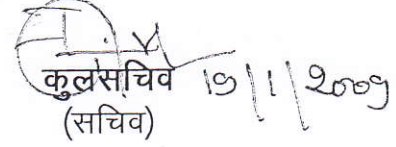 कुलसचिव 19/1/2009
(सचिव)